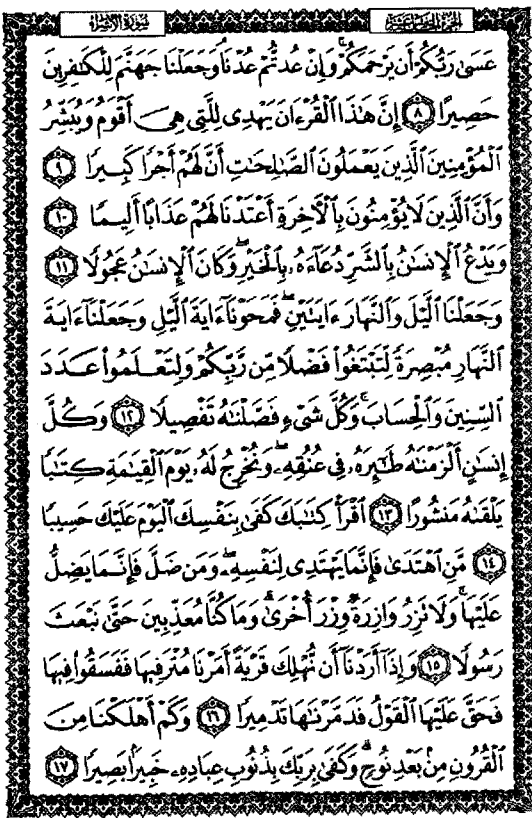 سورة الإسراء الجزء الخامس عشر
عَسَىٰ رَبُّكُمْ أَن يَرْحَمَكُمْ ۚ وَإِنْ عُدتُّمْ عُدْنَا ۘ وَجَعَلْنَا جَهَنَّمَ لِلْكَٰفِرِينَ
حَصِيرًا ٨ إِنَّ هَٰذَا ٱلْقُرْءَانَ يَهْدِى لِلَّتِى هِىَ أَقْوَمُ وَيُبَشِّرُ
ٱلْمُؤْمِنِينَ ٱلَّذِينَ يَعْمَلُونَ ٱلصَّٰلِحَٰتِ أَنَّ لَهُمْ أَجْرًا كَبِيرًا ٩
وَأَنَّ ٱلَّذِينَ لَا يُؤْمِنُونَ بِٱلْءَاخِرَةِ أَعْتَدْنَا لَهُمْ عَذَابًا أَلِيمًا ١٠
وَيَدْعُ ٱلْإِنسَٰنُ بِٱلشَّرِّ دُعَآءَهُۥ بِٱلْخَيْرِ ۖ وَكَانَ ٱلْإِنسَٰنُ عَجُولًا ١١
وَجَعَلْنَا ٱلَّيْلَ وَٱلنَّهَارَ ءَايَتَيْنِ ۖ فَمَحَوْنَآ ءَايَةَ ٱلَّيْلِ وَجَعَلْنَآ ءَايَةَ
ٱلنَّهَارِ مُبْصِرَةً لِّتَبْتَغُوا۟ فَضْلًا مِّن رَّبِّكُمْ وَلِتَعْلَمُوا۟ عَدَدَ
ٱلسِّنِينَ وَٱلْحِسَابَ ۚ وَكُلَّ شَىْءٍ فَصَّلْنَٰهُ تَفْصِيلًا ١٢ وَكُلَّ
إِنسَٰنٍ أَلْزَمْنَٰهُ طَٰٓئِرَهُۥ فِى عُنُقِهِۦ ۖ وَنُخْرِجُ لَهُۥ يَوْمَ ٱلْقِيَٰمَةِ كِتَٰبًا
يَلْقَىٰهُ مَنشُورًا ١٣ ٱقْرَأْ كِتَٰبَكَ كَفَىٰ بِنَفْسِكَ ٱلْيَوْمَ عَلَيْكَ حَسِيبًا
١٤ مَّنِ ٱهْتَدَىٰ فَإِنَّمَا يَهْتَدِى لِنَفْسِهِۦ ۖ وَمَن ضَلَّ فَإِنَّمَا يَضِلُّ
عَلَيْهَا ۚ وَلَا تَزِرُ وَازِرَةٌ وِزْرَ أُخْرَىٰ ۗ وَمَا كُنَّا مُعَذِّبِينَ حَتَّىٰ نَبْعَثَ
رَسُولًا ١٥ وَإِذَآ أَرَدْنَآ أَن نُّهْلِكَ قَرْيَةً أَمَرْنَا مُتْرَفِيهَا فَفَسَقُوا۟ فِيهَا
فَحَقَّ عَلَيْهَا ٱلْقَوْلُ فَدَمَّرْنَٰهَا تَدْمِيرًا ١٦ وَكَمْ أَهْلَكْنَا مِنَ
ٱلْقُرُونِ مِنۢ بَعْدِ نُوحٍ ۗ وَكَفَىٰ بِرَبِّكَ بِذُنُوبِ عِبَادِهِۦ خَبِيرًۢا بَصِيرًا ١٧